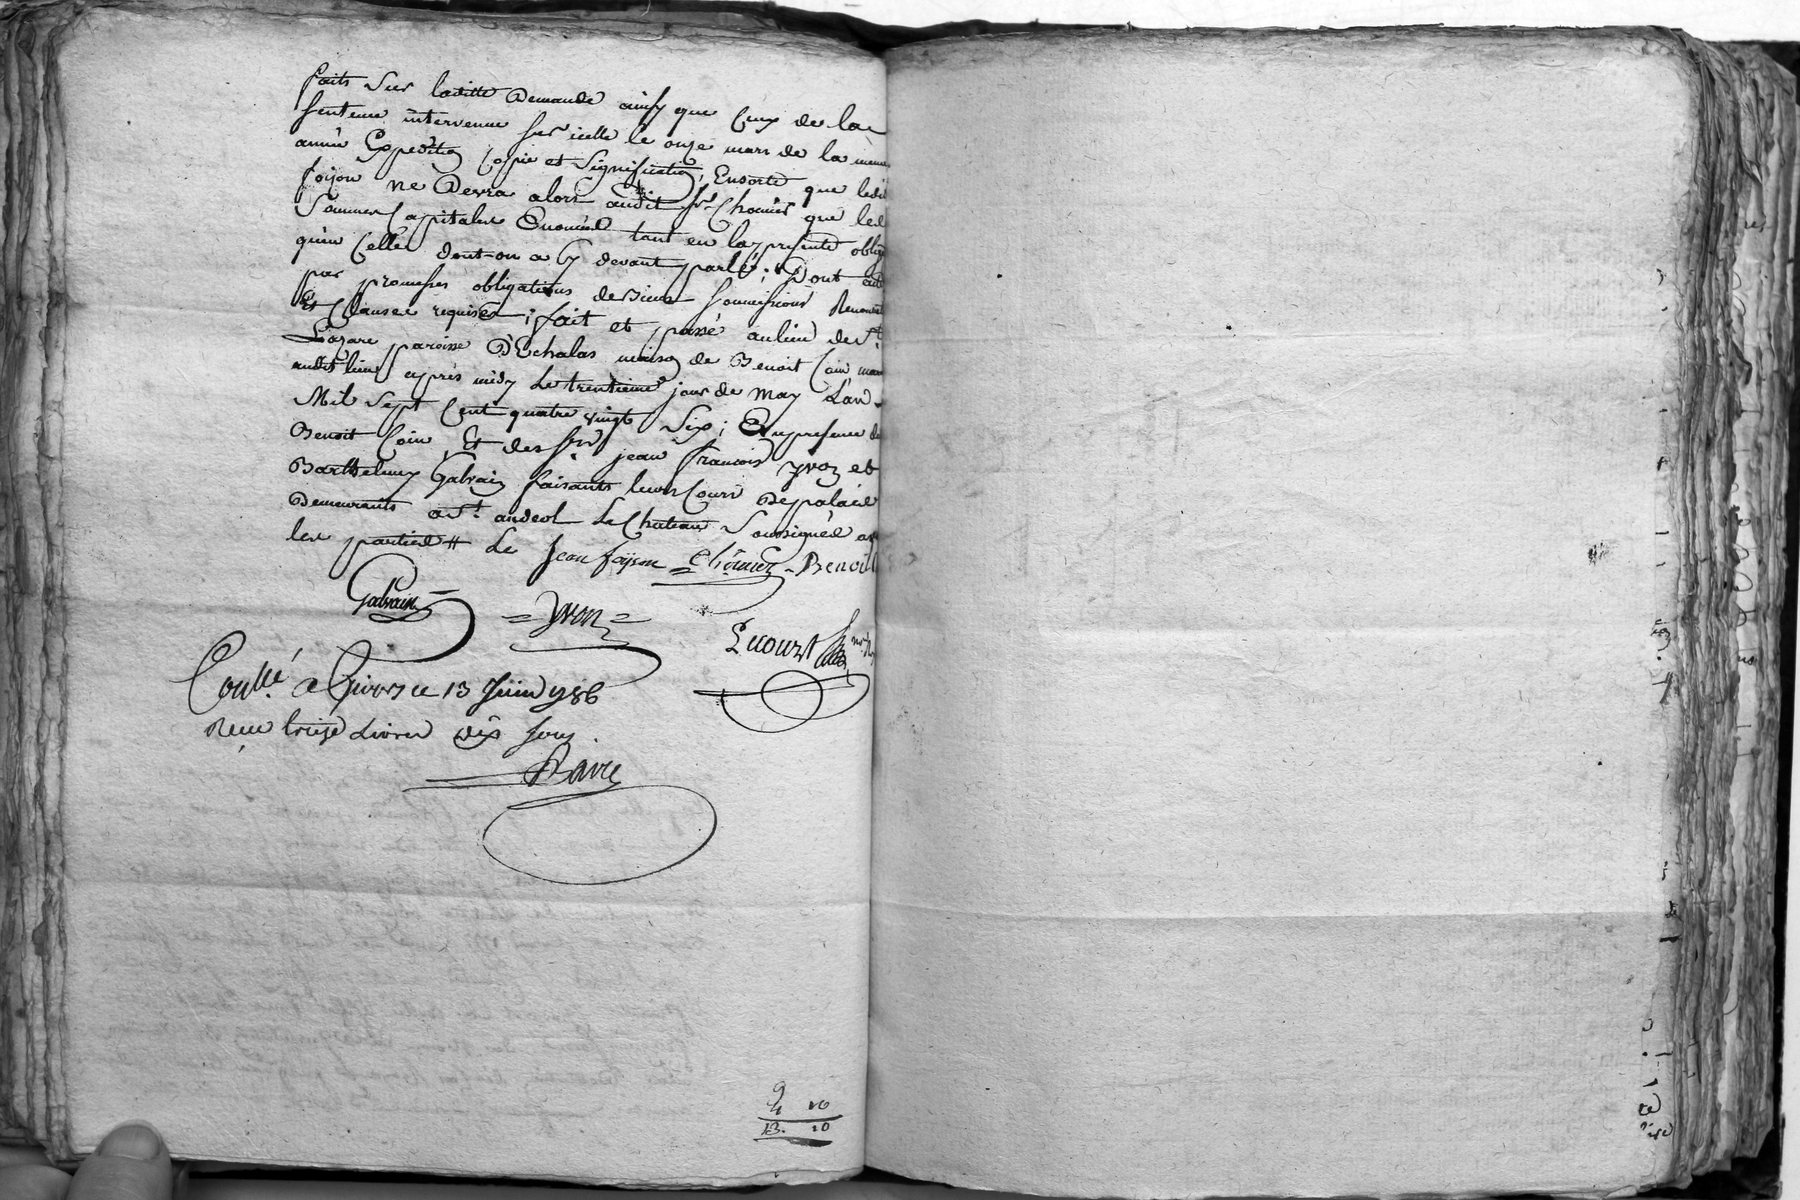 faits sur laditte Demande ainsy que Ceux de la
Sentence intervenue sur icelle le onze mars de la meme
année Expedition Copie et Signification, Ensorte que ledit
foijon ne Devra alors audit Sr. Chomer que les
Sommes Capitales Enoncées tant en la presente oblig
qu'en Celles dont on a Cy devant parlé; Dont acte
par promesses obligations de Biens Soumissions Renonciat
Et Clauses requises; fait et passé au lieu de St.
Lazare paroisse D'Echalas maison de Benoit Coin
audit lieu après midy Le trentieme jour de May L'an
Mil Sept Cent quatre vingt Six; En presence de
Benoit Coin Et des Srs. jean francois yvon et
Barthelemy Galvain faisants leurs Cours De palais
Demeurants a St. andeol Le Chateau Soussignés av
les parties # Le Jean foijon = Chomer - Benoit
Galvain = yvon = Lecourt
Conllé. a Givors ce 13 Juin 1786
Reçu treize Livres dix sous.
Bavre
4 10
13. 10